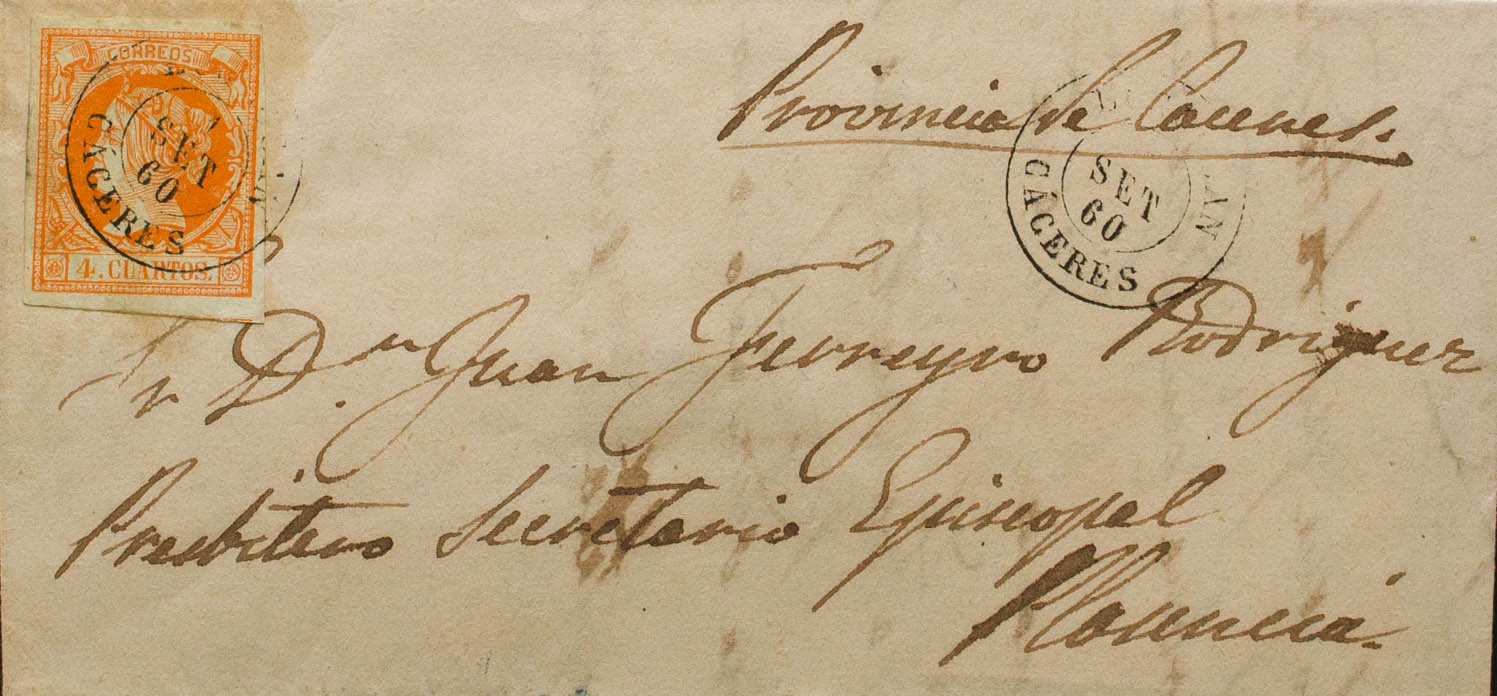 CORREOS
SET
60
CÁCERES
4. CUARTOS.
Provincia de Caceres.
SET
60
CÁCERES
Sr D.n Juan Ferreyro Rodriguez
Presbitero Secretario Episcopal
Plasencia